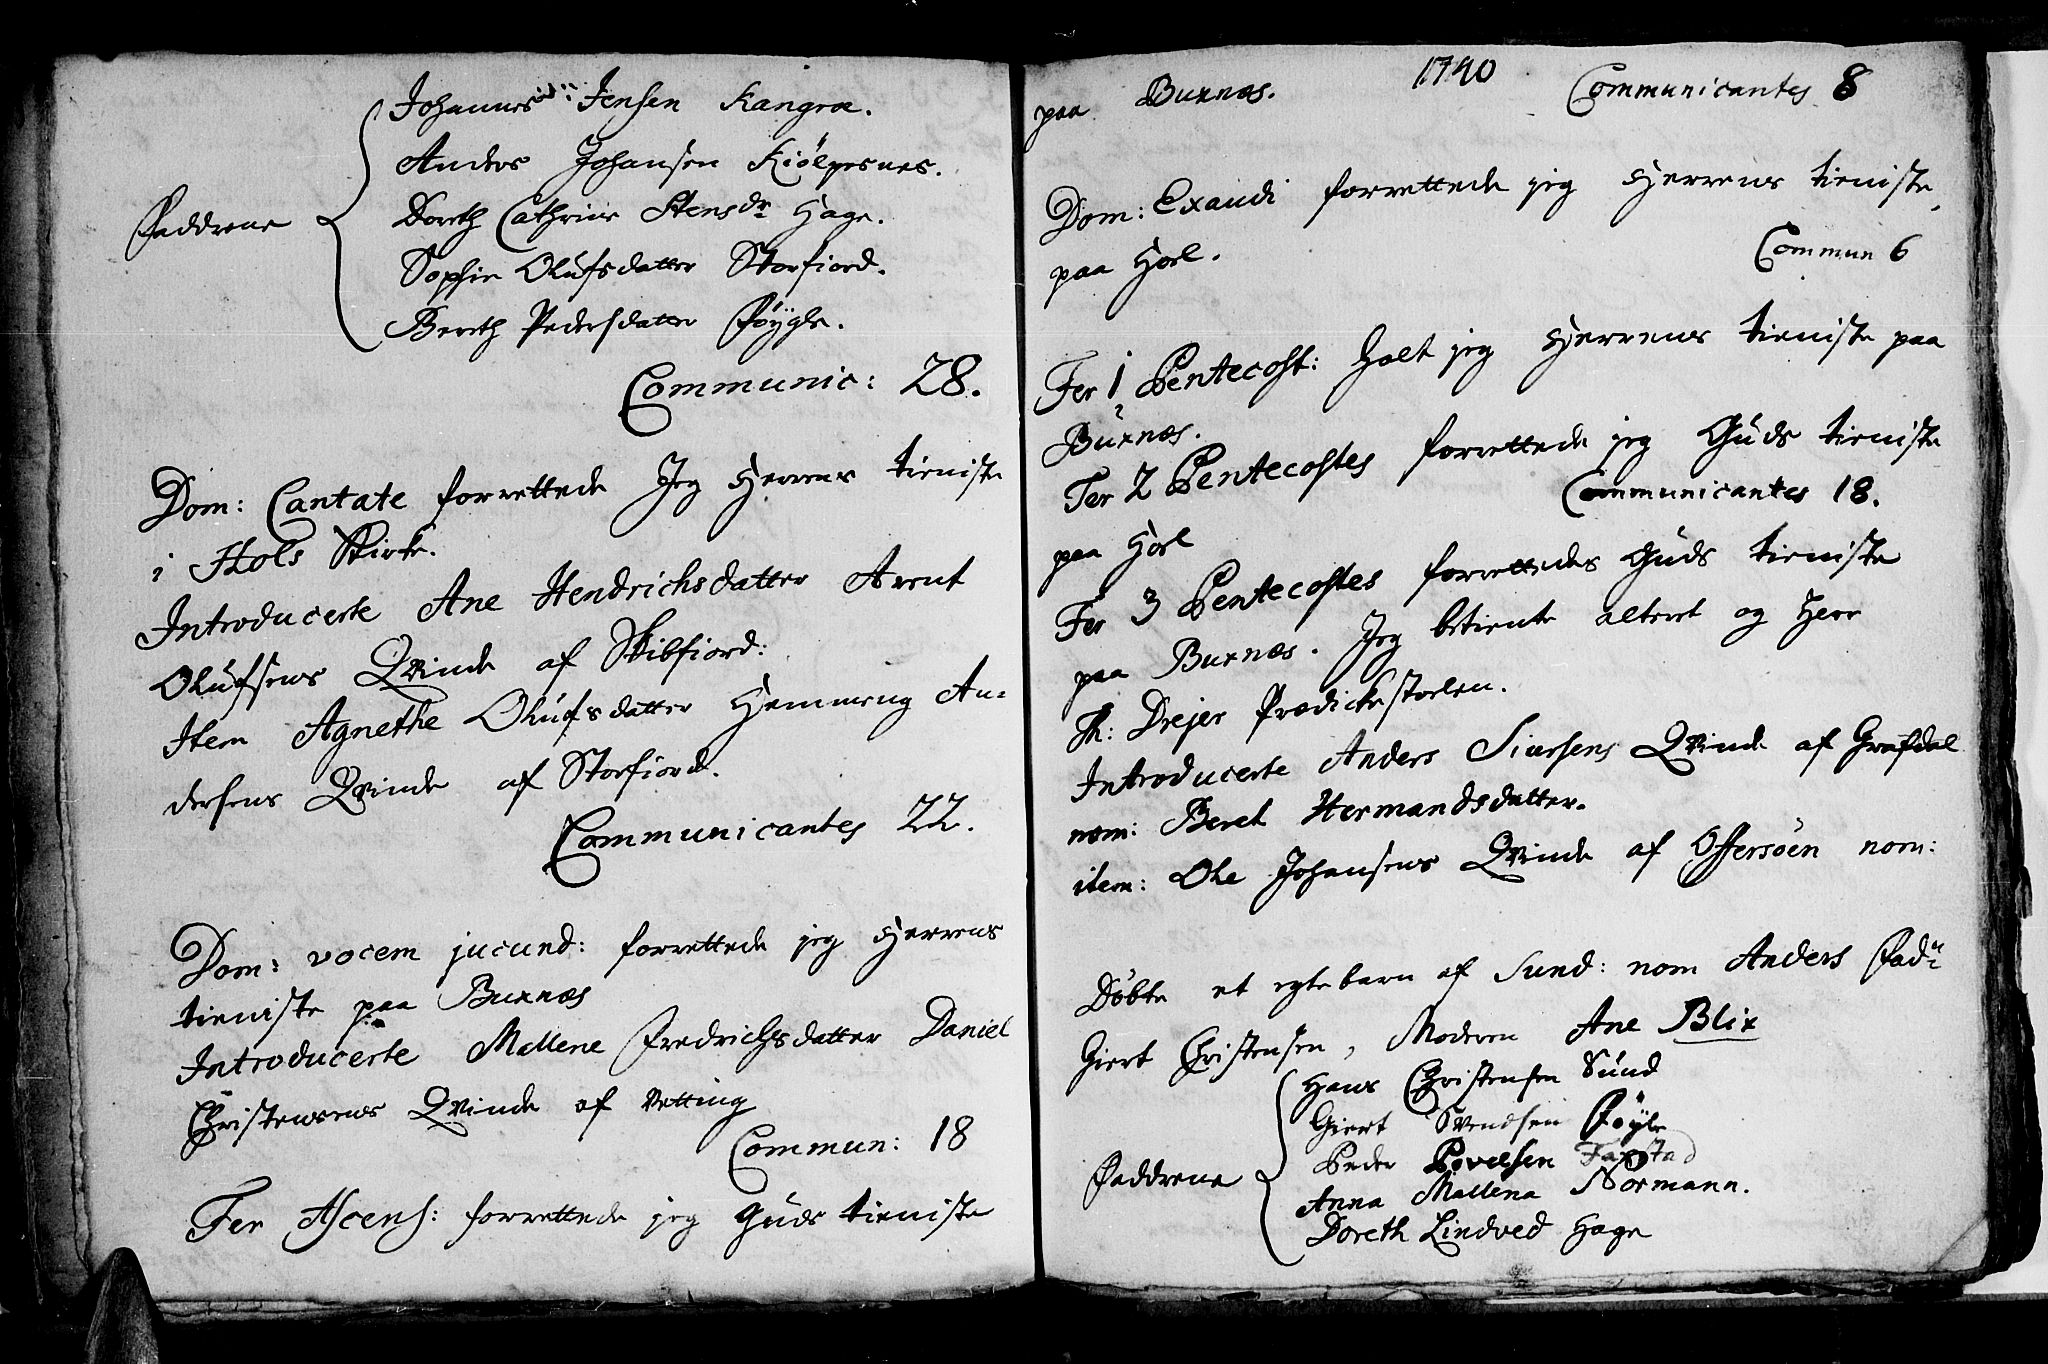 Johannes Jensen Kangroe.
Anders Johansen Kiølpesnes.
Doreth Cathrine Stensdr Hage.
Faddrene
Sophie Olufsdatter Storfiord.
Bereth Pedersdatter Føygle.
Communic: 28.
Dom: Cantate forrettede Jeg Herrens tieniste
i Hols Kirke.
Introducerte Ane Hendrichsdatter Arent
Olufsens Qvinde af Skibfiord:
Item Agnethe Olufsdatter Hemmeng An=
dersens Qvinde af Storfiord.
Communicantes 22.
Dom: vocem jucund: forrettede jeg Herrens
tieniste paa Buxnæs
Introducerte Mallene Fredrichsdatter Daniel
Christensens Qvinde af Vetting
Commun: 18
Fer Ascens: forrettede jeg Guds tieniste
1740
paa Buxnæs. Communicantes 8
Dom: Exaudi forrettede jeg Herrens tieniste,
paa Hoel. Commun 6
Fer 1 Pentecost: holt jeg Herrens tieniste paa
Buxnæs.
Fer 2 Pentecostes forrettede jeg Guds tieniste
paa Hoel Communicantes 18.
Fer 3 Pentecostes forrettedes Guds tieniste
paa Buxnæs. Jeg betiente alteret og Herr
Th: Drejer Prædickestoelen.
Introducerte Anders Siursens Qvinde af Grafdal
nom: Beret Hermandsdatter.
item: Ole Johansens Qvinde af Offersøen nom:
Døbte et egte barn af Sund: nom Anders Fad:
Giert Christensen, Moderen Ane Blix
Hans Christensen Sund
Giert Svendsen Føyle
Faddrene Peder Povelsen Farstad
Anna Mallena Normann.
Doreth Lindved Hage